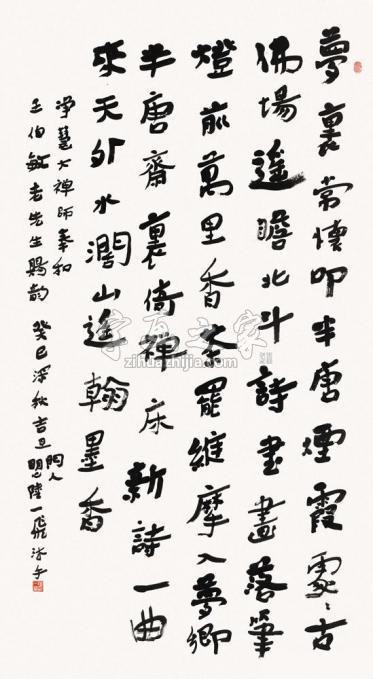 夢裏常懷叩半唐煙霞處〻古
佛場遙瞻北斗詩書畫落筆
燈前萬里香茶罷維摩入夢鄉
半唐齋裏倚禪床新詩一曲
來天外水濶山遙翰墨香
淨慧大禪師奉和
王伯敏老先生賜韵 癸巳深秋吉旦門人陸一飛沐手
字画之家
zihuazhijia.com